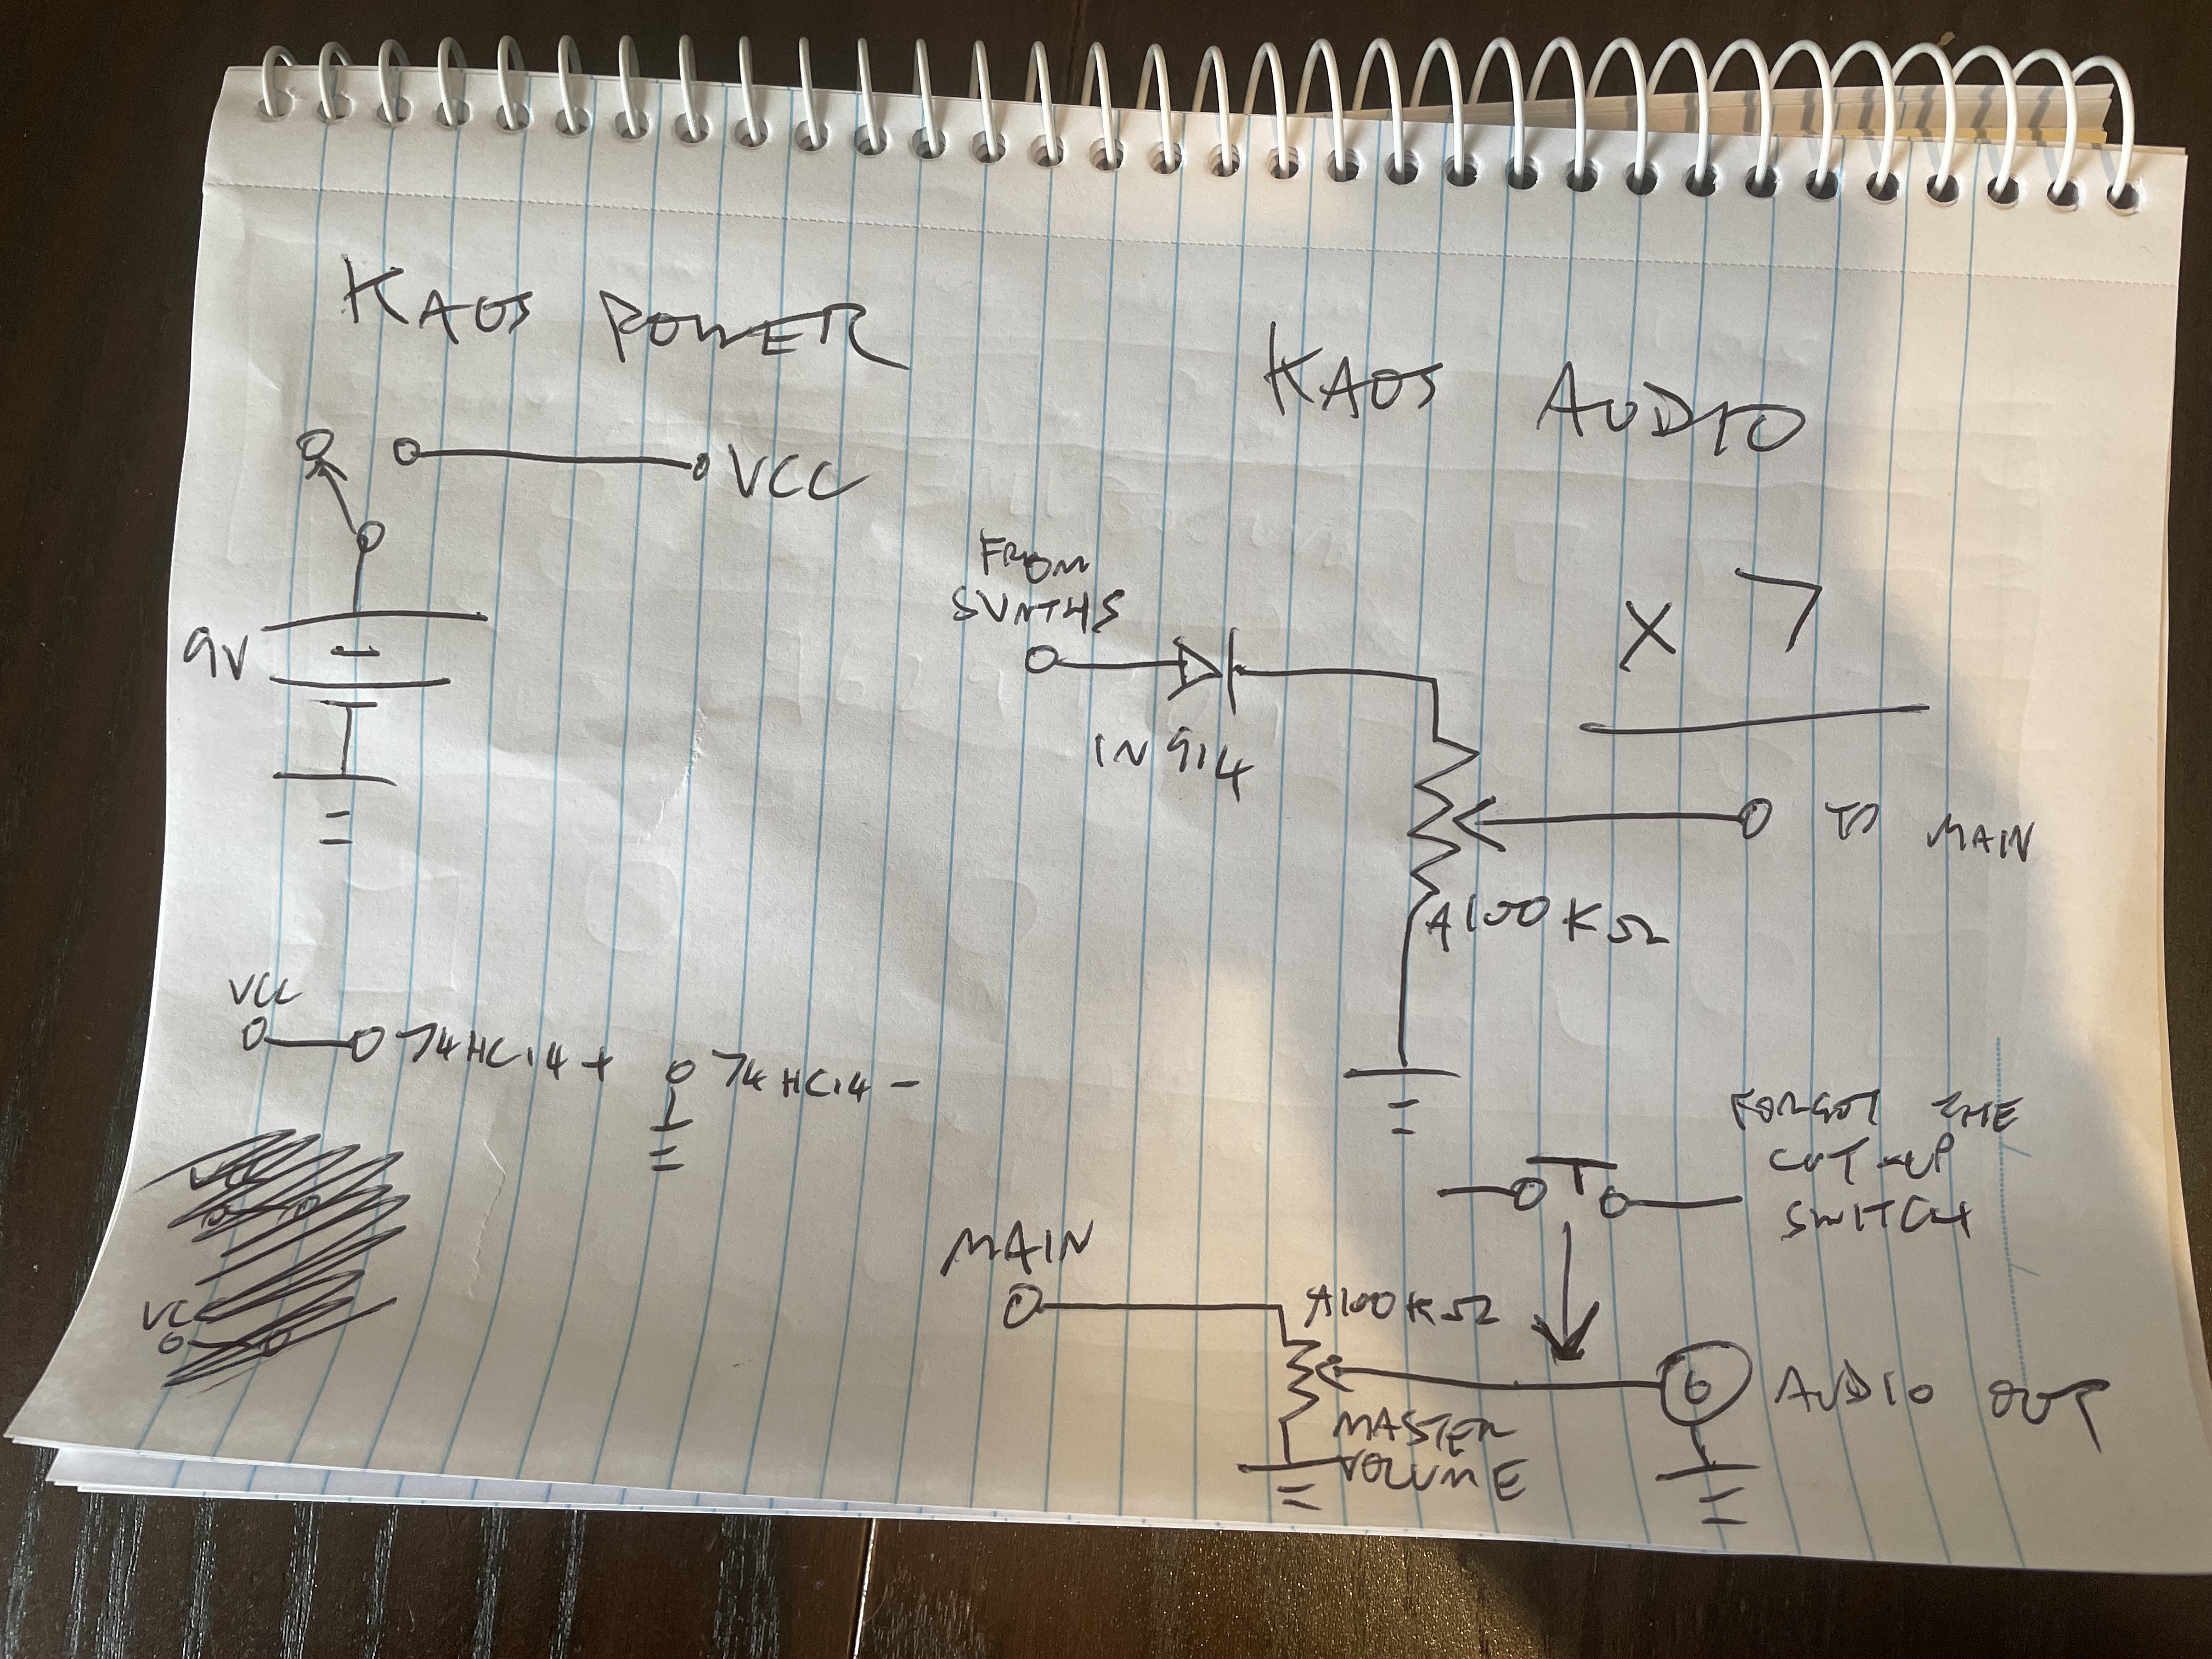 KAOS POWER
VCC
9V
VCC
74HC14+
74HC14-
VCC
VC
KAOS AUDIO
FROM
SYNTHS
X 7
1N914
TO MAIN
A100KΩ
FORGOT THE
CUT-UP
SWITCH
MAIN
A100KΩ
MASTER
VOLUME
AUDIO OUT